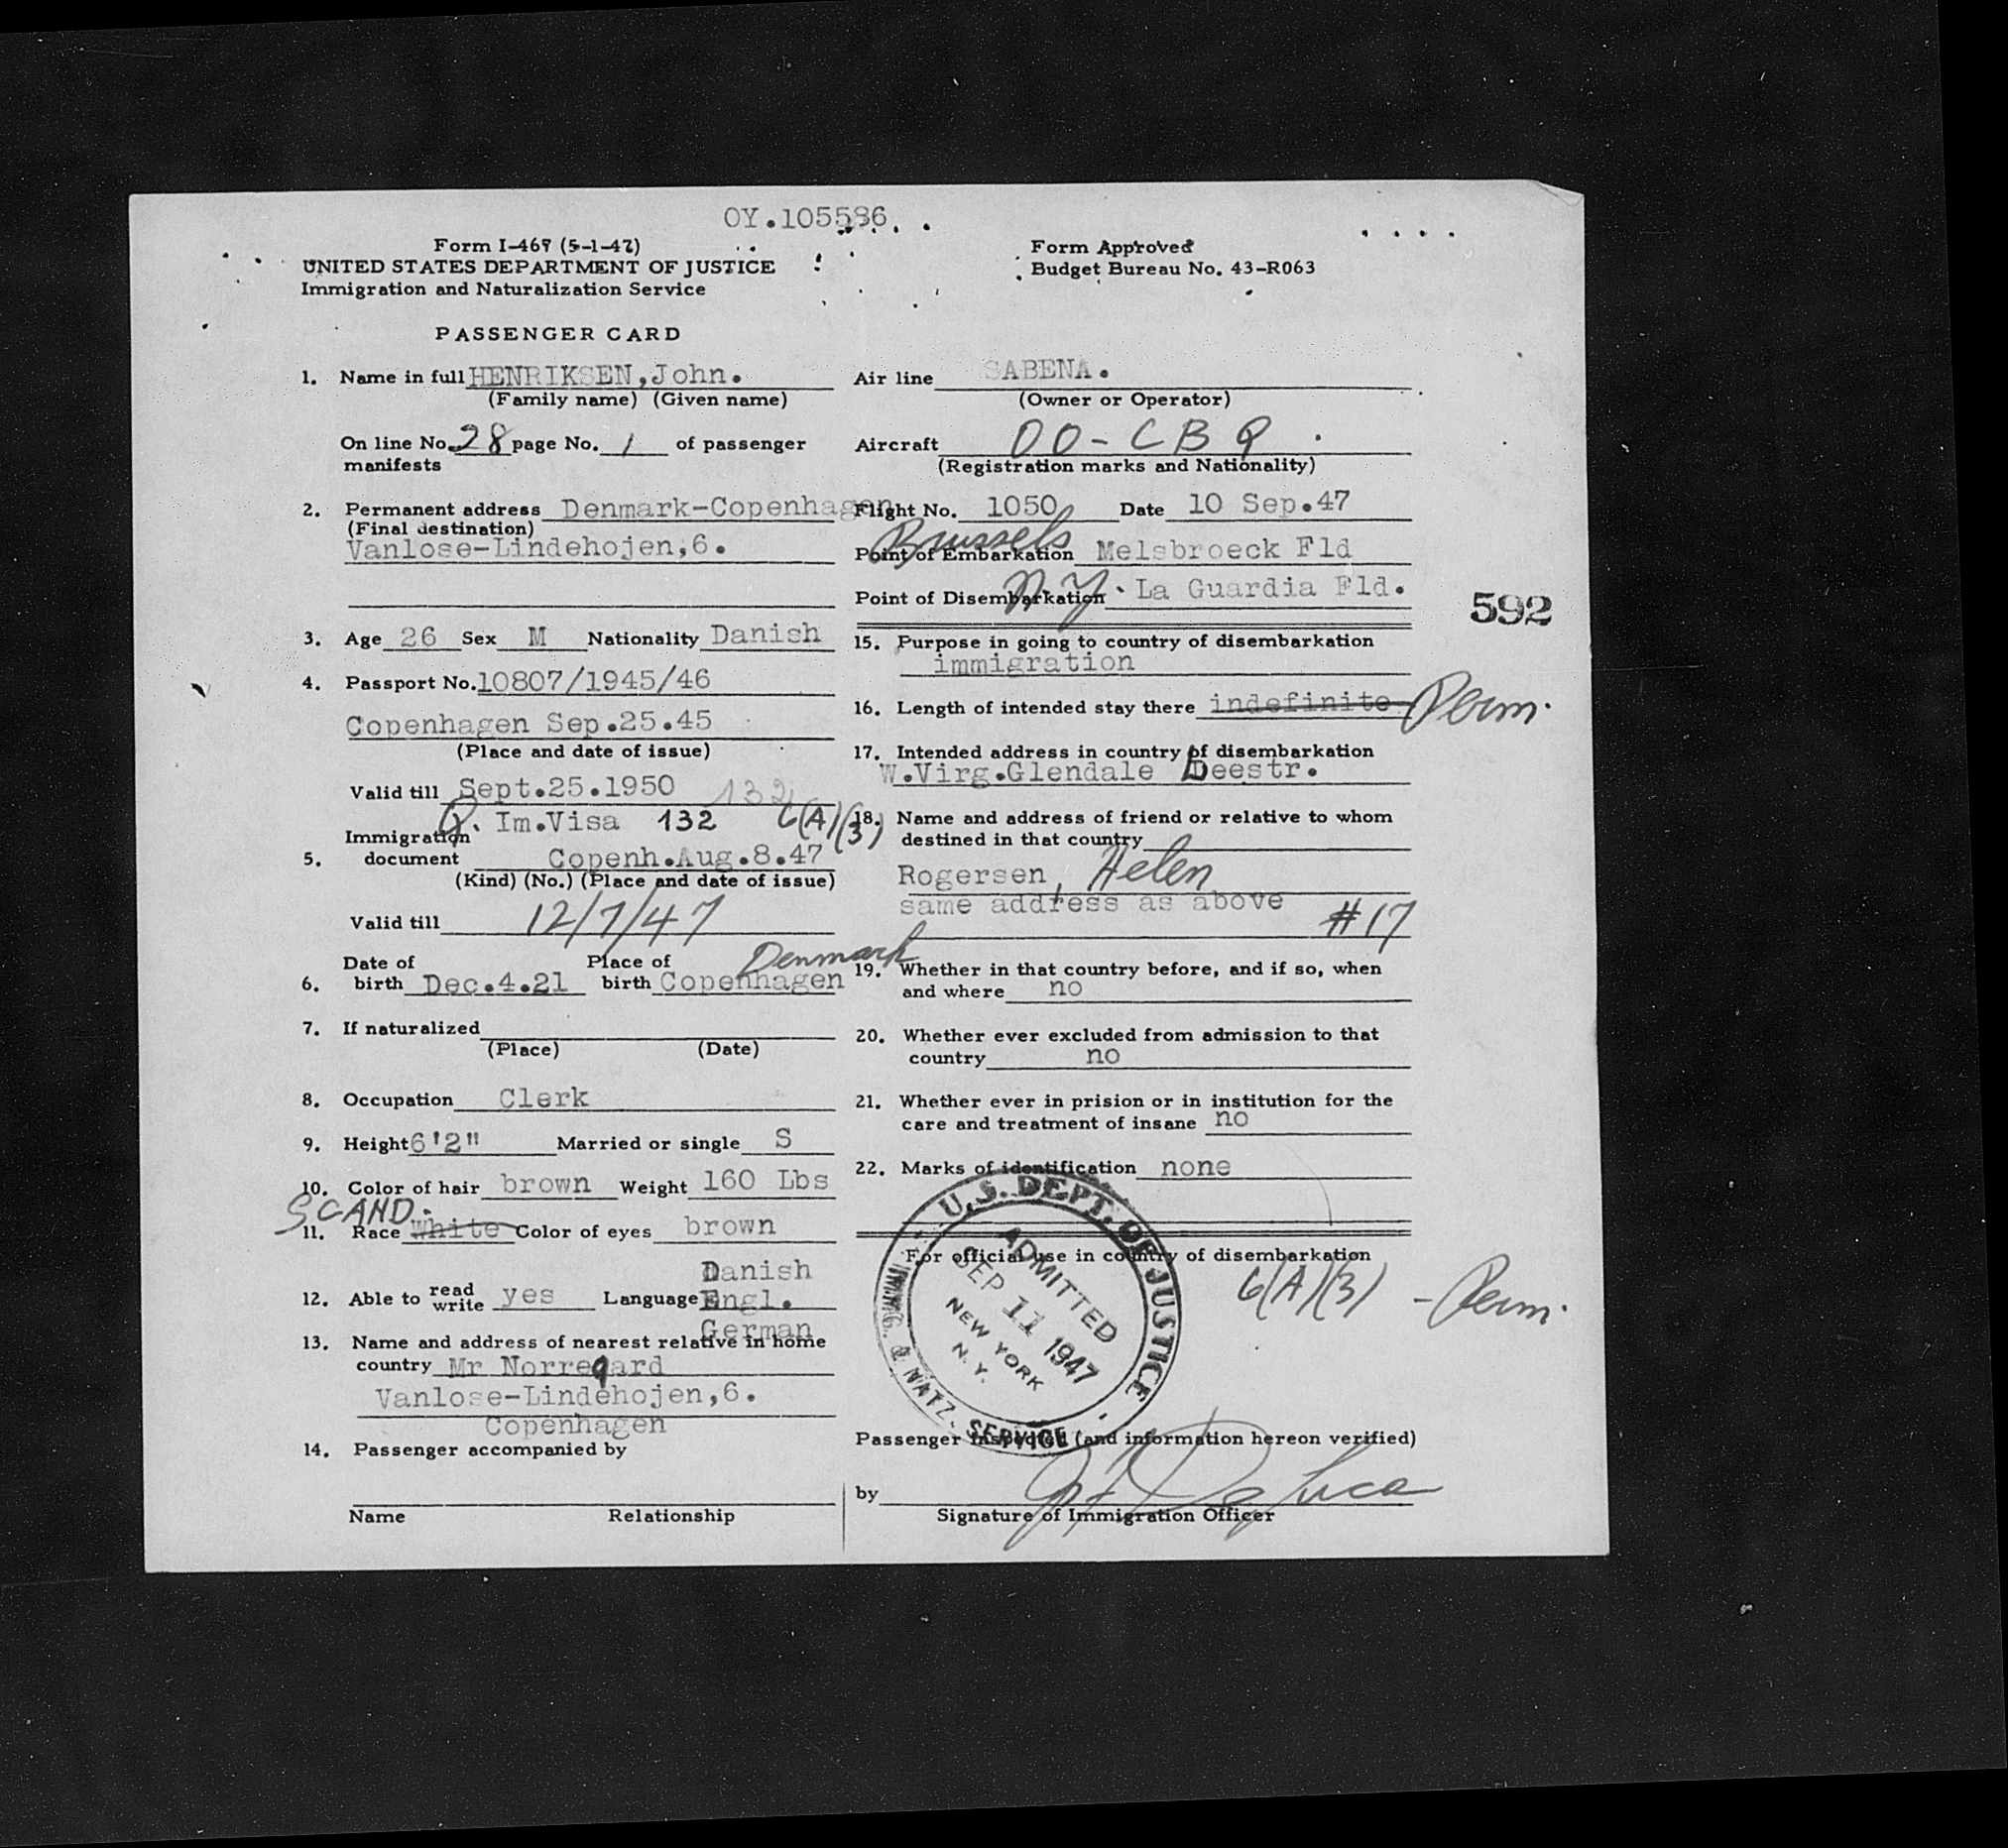 OY.105586
Form I-467 (5-1-47)
UNITED STATES DEPARTMENT OF JUSTICE
Immigration and Naturalization Service
Form Approved
Budget Bureau No. 43-R063
PASSENGER CARD
1. Name in full HENRIKSEN,John.
(Family name) (Given name)
On line No. 28 page No. 1 of passenger
manifests
2. Permanent address Denmark-Copenhagen
(Final destination)
Vanlose-Lindehojen,6.
3. Age 26 Sex M Nationality Danish
4. Passport No. 10807/1945/46
Copenhagen Sep.25.45
(Place and date of issue)
Valid till Sept.25.1950 132
Q. Im.Visa 132 6(A)(3)
Immigration
5. document Copenh.Aug.8.47
(Kind) (No.) (Place and date of issue)
Valid till 12/7/47
Date of Place of Denmark
6. birth Dec.4.21 birth Copenhagen
7. If naturalized
(Place) (Date)
8. Occupation Clerk
9. Height 6'2" Married or single S
10. Color of hair brown Weight 160 Lbs
SCAND.
11. Race White Color of eyes brown
Danish
12. Able to read write yes Language Engl.
German
13. Name and address of nearest relative in home
country Mr Norregard
Vanlose-Lindehojen,6.
Copenhagen
14. Passenger accompanied by
Name Relationship
Air line SABENA.
(Owner or Operator)
Aircraft OO-CBQ.
(Registration marks and Nationality)
Flight No. 1050 Date 10 Sep.47
Brussels
Point of Embarkation Melsbroeck Fld
Point of Disembarkation N.Y. La Guardia Fld.
592
15. Purpose in going to country of disembarkation
immigration
16. Length of intended stay there indefinite Perm.
17. Intended address in country of disembarkation
W.Virg.Glendale Deestr.
18. Name and address of friend or relative to whom
destined in that country
Rogersen, Helen
same address as above #17
19. Whether in that country before, and if so, when
and where no
20. Whether ever excluded from admission to that
country no
21. Whether ever in prision or in institution for the
care and treatment of insane no
22. Marks of identification none
For official use in country of disembarkation
6(A)(3) - Perm.
U.S. DEPT. OF JUSTICE
IMMIG. & NATZ. SERVICE
ADMITTED
SEP 11 1947
NEW YORK
N.Y.
Passenger inspected (and information hereon verified)
by
Signature of Immigration Officer